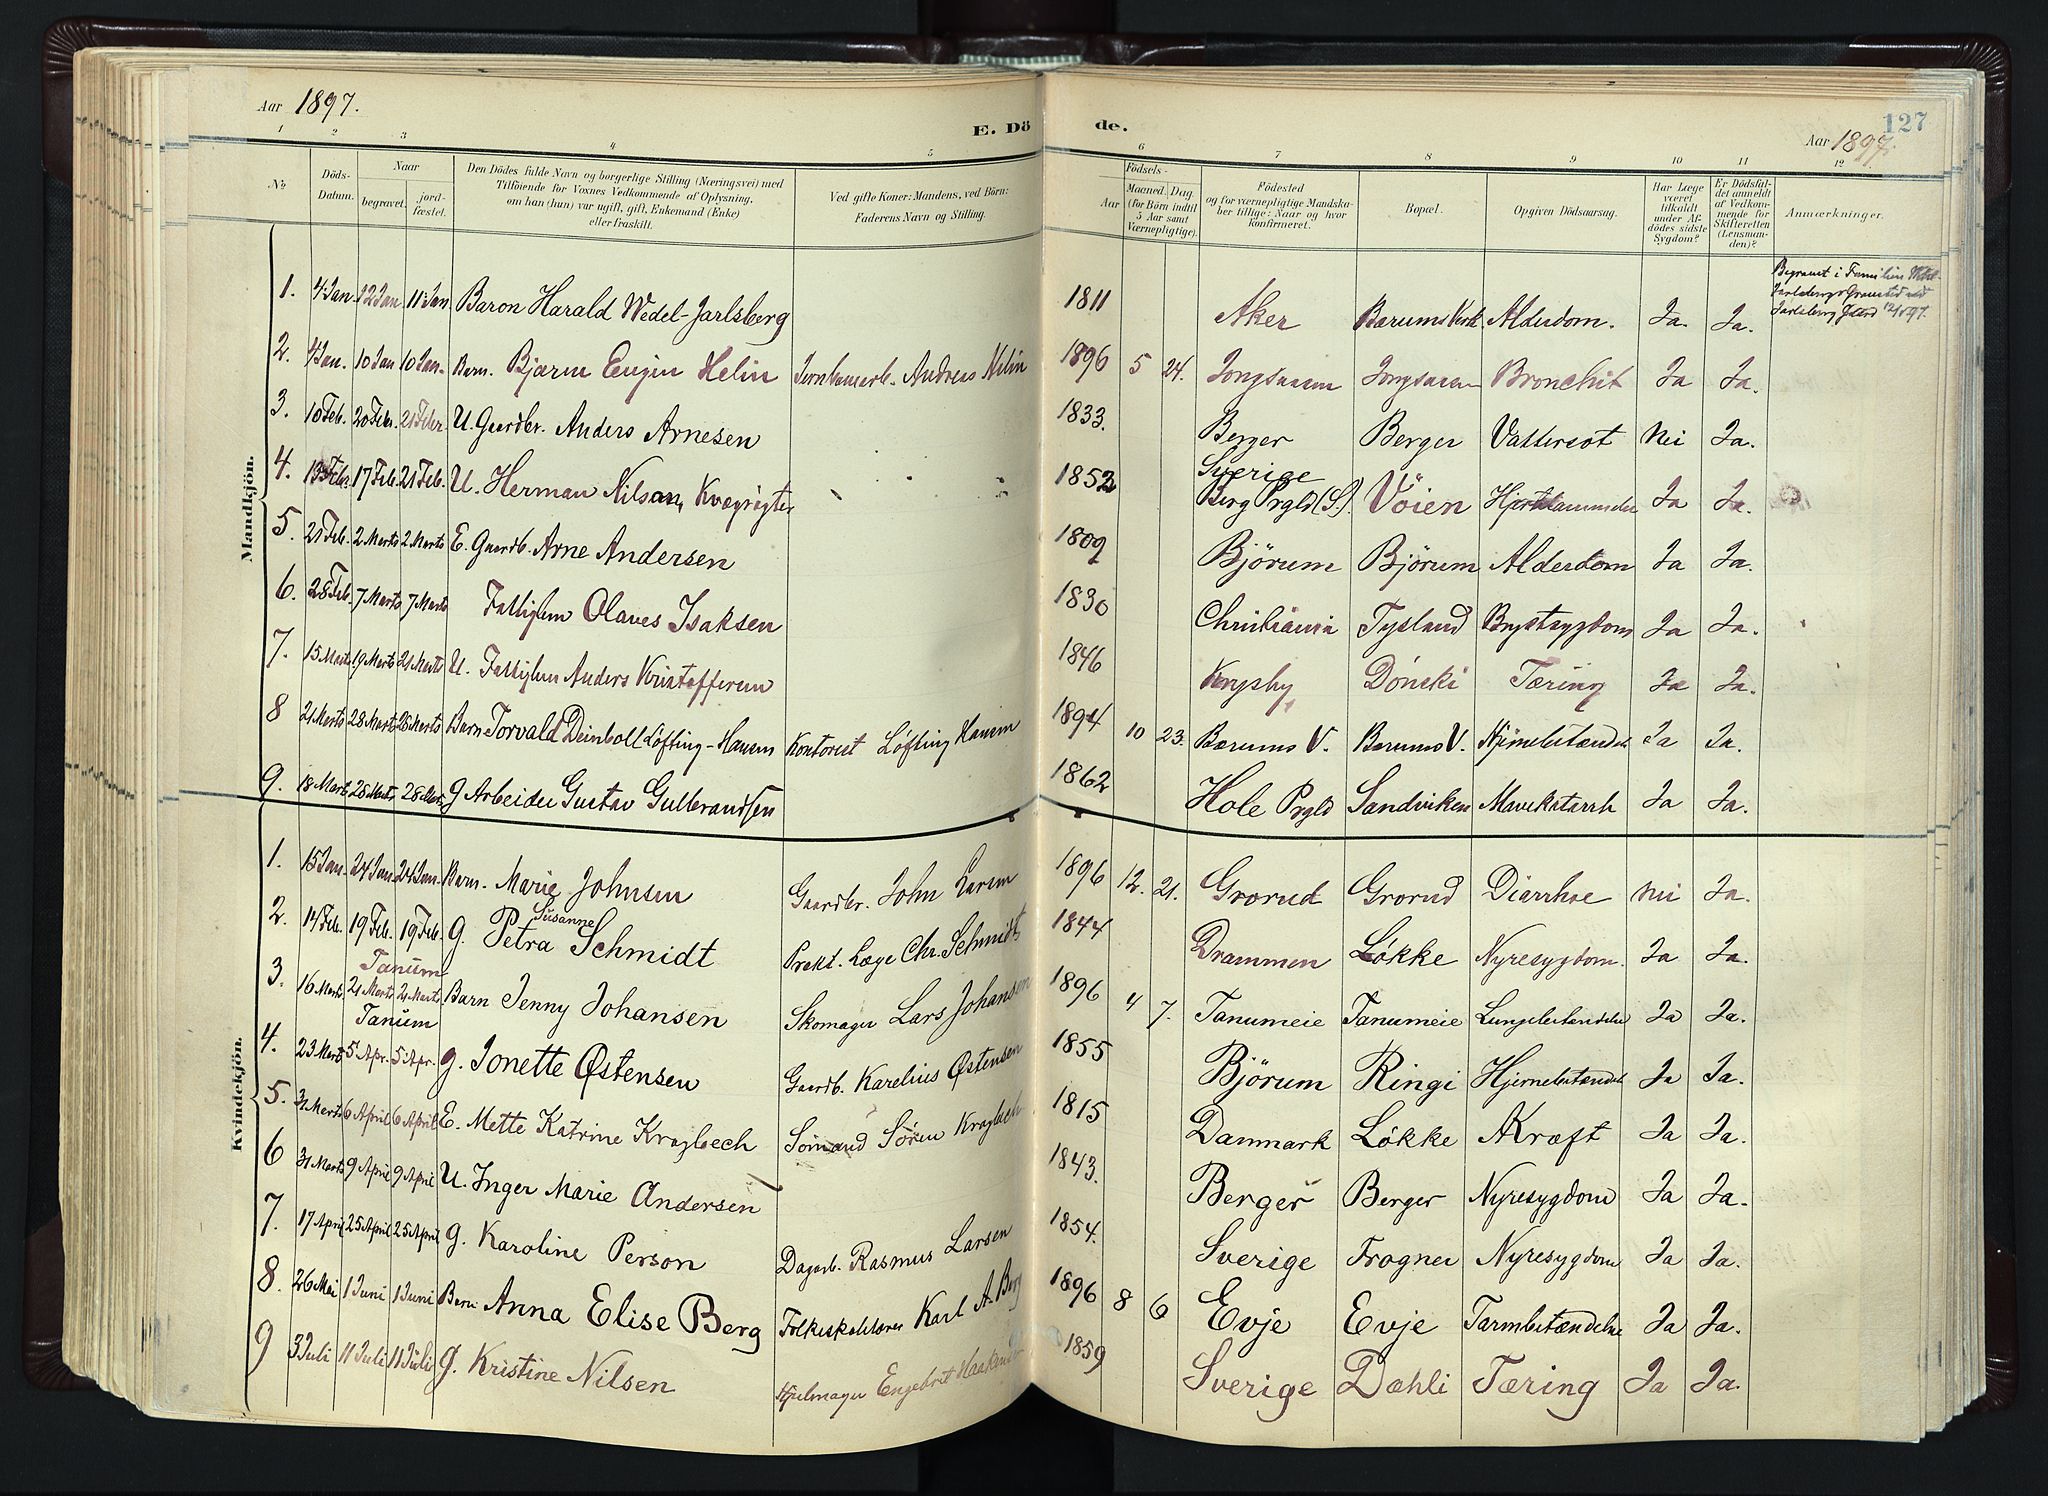 Aar 1897.
E. Dö de.
127
Aar 1897.
1 2 3 4 5 6 7 8 9 10 11 12
No
Döds-Datum.
Naar
begravet. jord-fæstet.
Den Dödes fulde Navn og borgerlige Stilling (Næringsvei) med
Tilföiende for Voxnes Vedkommende af Oplysning,
om han (hun) var ugift, gift, Enkemand (Enke)
eller fraskilt.
Ved gifte Koner: Mandens, ved Börn:
Faderens Navn og Stilling.
Födsels-
Aar Maaned. Dag.
(for Börn indtil
5 Aar samt
Værnepligtige).
Födested
og for værnepligtige Mandska-
ber tillige: Naar og hvor
konfirmeret.
Bopæl.
Opgiven Dödsaarsag.
Har Læge
været
tilkaldt
under Af-
dödes sidste
Sygdom?
Er Dödsfal-
det anmeldt
af Vedkom-
mende for
Skifteretten
(Lensman-
den)?
Anmærkninger.
Mandkjön.
1. 4 Jan 12 Jan 11 Jan Baron Harald Wedel-Jarlsberg 1811 Aker Bærums Verk Alderdom. Ja. Ja. Begravet i Familien Wedel-
Jarlsbergs Gravsted ved
Jarlsberg 12/1 97.
2. 4 Jan. 10 Jan 10 Jan. Barn. Bjarne Eugen Helin Andreas Helin 1896 5 24. Jongsaasen Jongsaasen Bronchit Ja Ja.
3. 10 Feb. 20 Febr. 21 Febr U. Gaardbr. Anders Arnesen 1833. Berger Berger Vattersot Nei Ja.
4. 13 Febr. 17 Feb. 21 Feb. U. Herman Nilson, Kvægrøgter 1852 Sverige
Berg Prgld (S.). Vöien Ja Ja.
5. 21 Feb. 2 Marts 2 Marts E. Gaardb. Arne Andersen 1809 Bjórum Bjórum Alderdom Ja Ja.
6. 28 Feb. 7 Marts 7 Marts Fattiglem Olaves Isaksen 1830 Christiania Tysland Brystsygdom Ja Ja.
7. 15 Marts 19 Marts 21 Marts U. Fattiglem Anders Kristoffersen 1846 Dónski Tæring Ja Ja.
8 21 Marts 28 Marts 28 Marts Barn Torvald Deinboll Löfting-Hansen Kontorist Löfting Hansen 1894 10 23. Bærums V. Bærums V. Hjernebetændels Ja Ja.
9. 18 Marts 28 Marts 28 Mar. G Arbeider Gustav Gulbrandsen 1862 Hole Prgld Sandviken Mavekatarrh Ja Ja.
Kvindekjön.
1. 15 Jan. 24 Jan 24 Jan. Barn. Marie Johnsen Gaardbr. John Larsen 1896 12. 21. Grorud Grorud Diarrhoe Nei Ja.
2. 14 Feb. 19 Feb. 19 Feb. G. Petra Susanne Schmidt Prakt. Læge Chr. Schmidt 1844 Drammen Løkke Nyresygdom. Ja Ja.
Tanum
3. 16 Marts 21 Marts 21 Marts Barn Jenny Johansen Skomager Lars Johansen 1896 4 7. Tanumeie Tanumeie Lungebetændelse Ja Ja.
Tanum
4. 23 Marts 5 Apr. 5 Apr. G. Jonette Østensen Gaardb. Karelius Østensen 1855 Bjórum Ringi Hjernebetændels Ja Ja.
5. 31 Marts 6 April 6 April E. Mette Katrine Kragbech Sömand Sören Kragbech 1815 Danmark Løkke Kræft Ja Ja.
6 31 Marts 9 April 9 April U. Inger Marie Andersen 1843. Berger Berger Nyresygdom Ja Ja.
7. 17 April 25 April 25 April G. Karoline Person Dagarb. Rasmus Larsen 1854. Sverige Frogner Nyresygdom Ja Ja.
8. 26 Mai 1 Juni 1 Juni Barn Anna Elise Berg Folkeskolelærer Karl A. Berg 1896 8 6 Evje Evje Tarmbetændelse Ja Ja.
9 3 Juli 11 Juli 11 Juli G. Kristine Nilsen Hjulmager Engebrit Haakensen 1859 Sverige Dæhli Tæring Ja Ja.